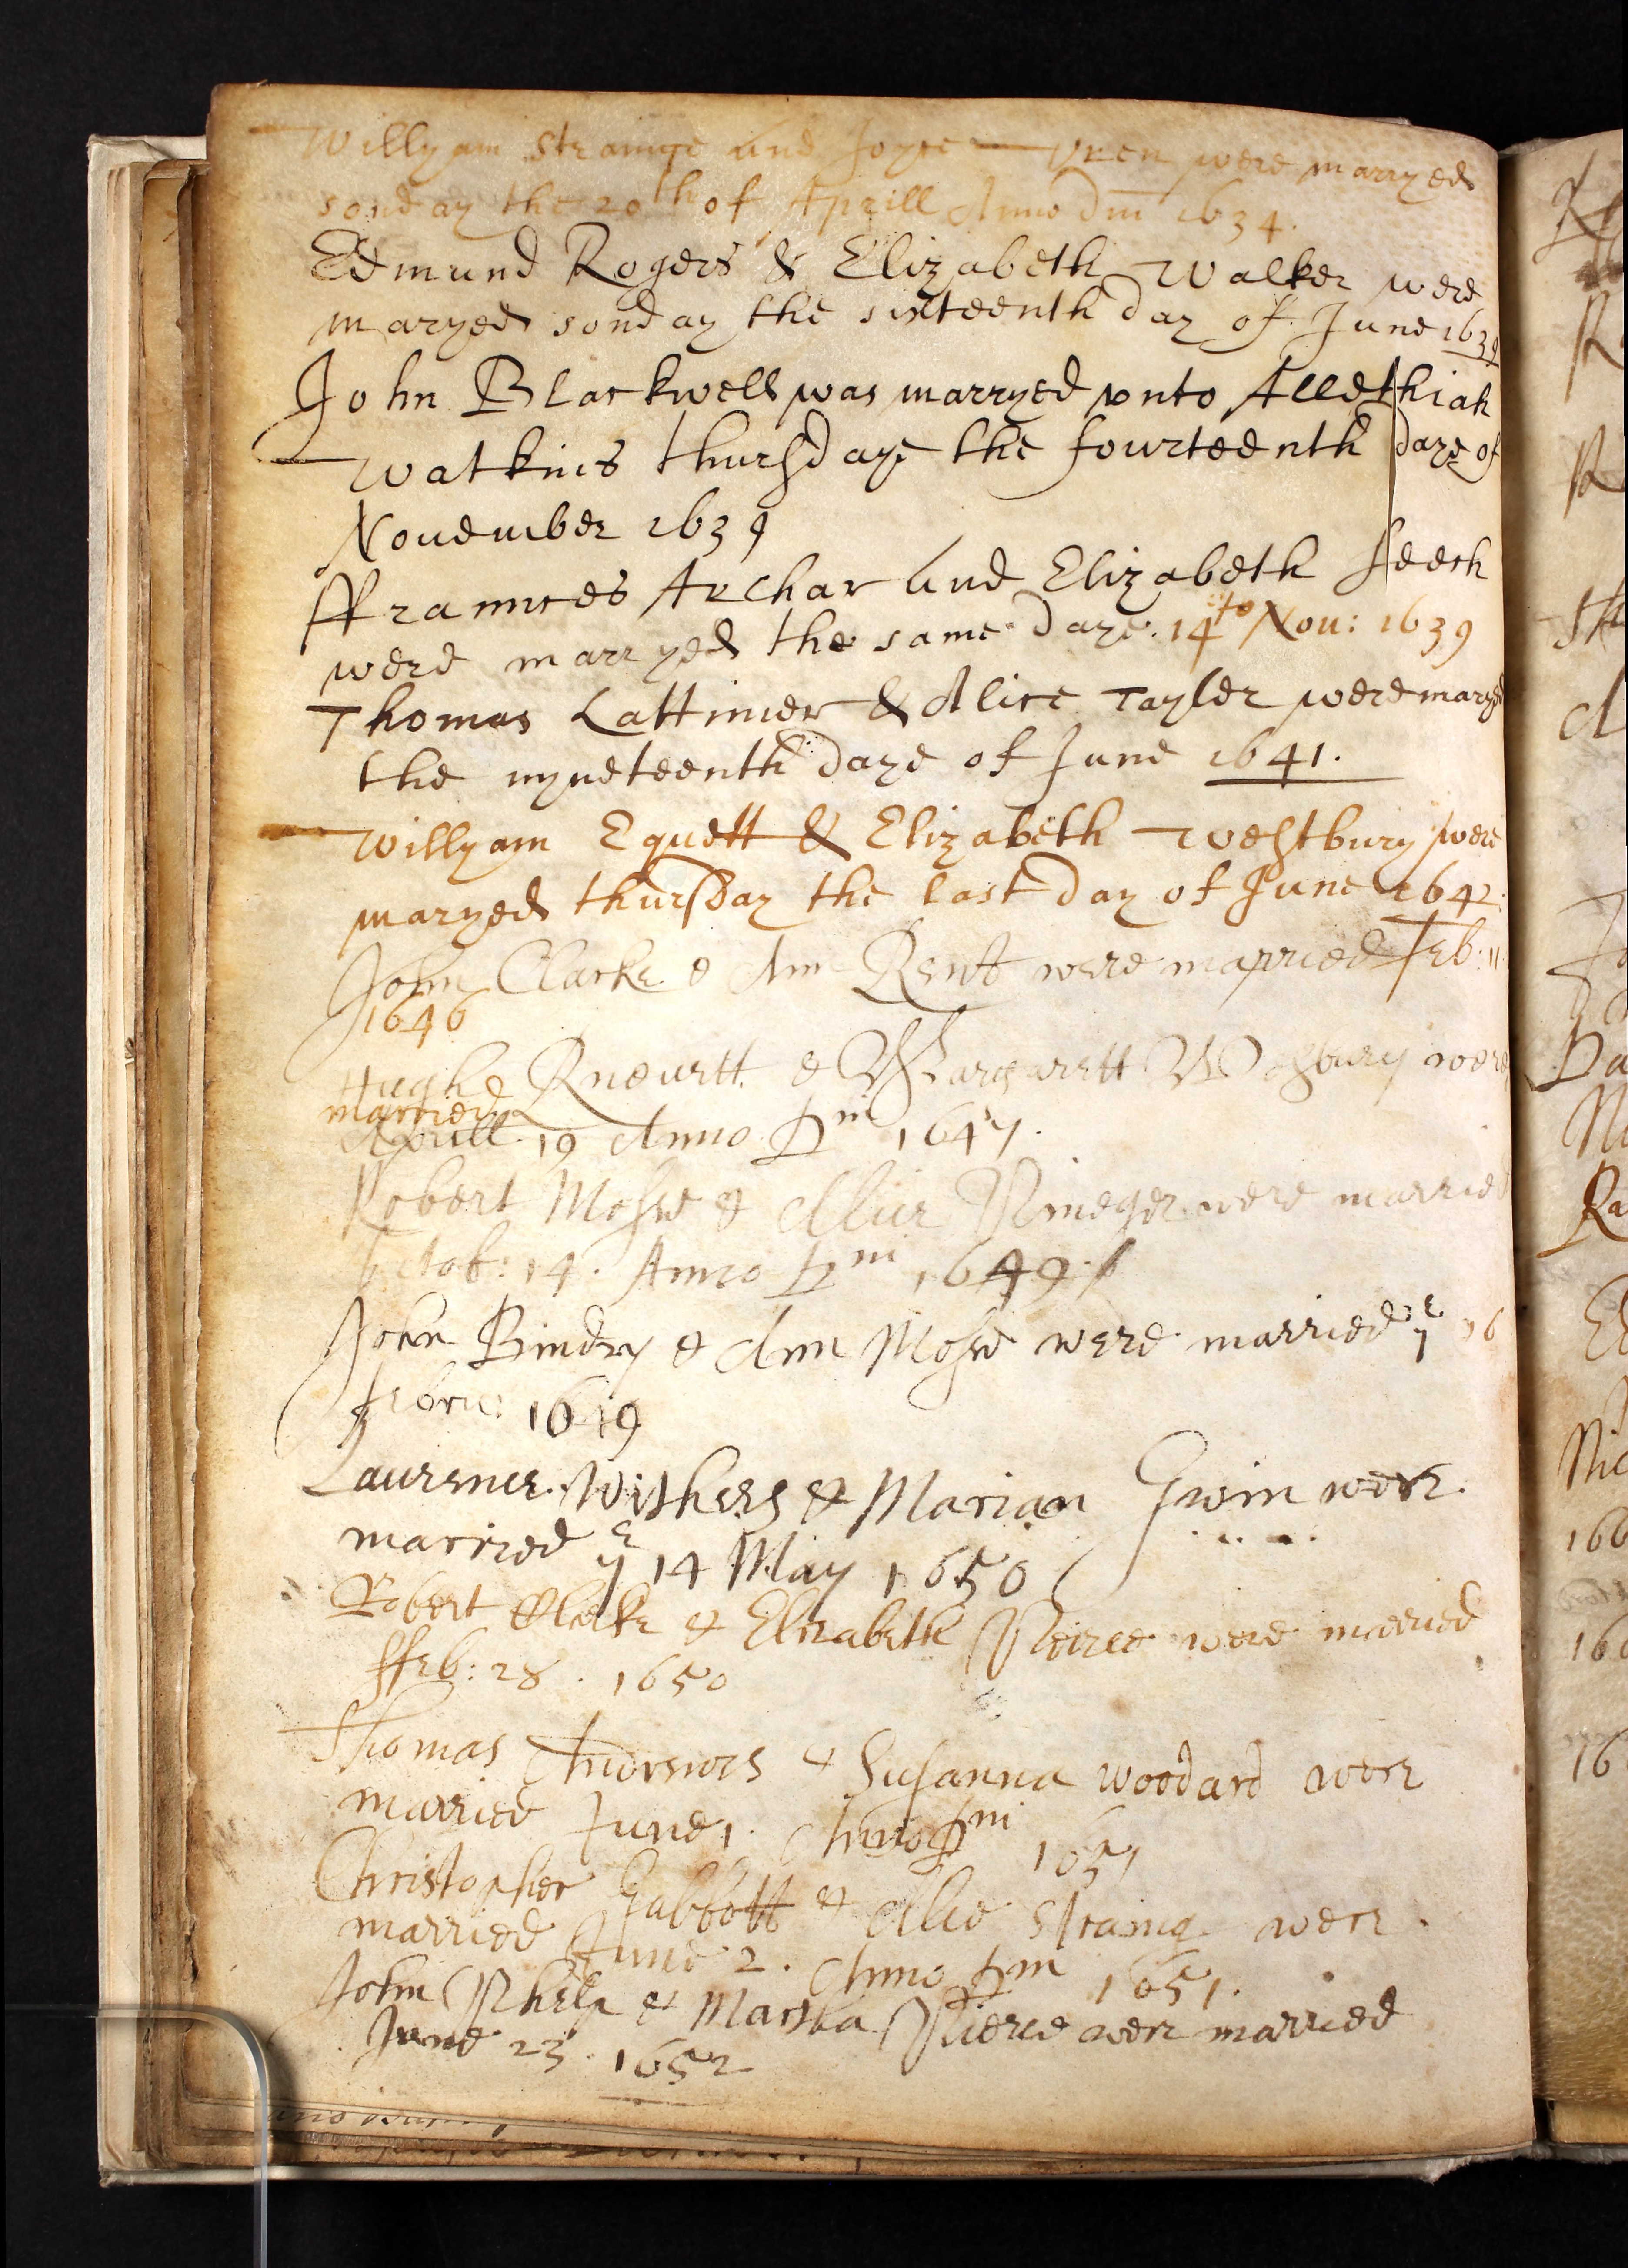 Willyam Strainge and Joyce Vren were marryed
sonday the 20th of Aprill Anno Dm 1634.
Edmund Rogers & Elizabeth Walker were
maryed sonday the sixteenth day of June 1639
John Blackwell was marryed vnto Allethiah
Watkins thursdaye the fourteenth daye of
Nouember 1639
ffrannces Archar and Elizabeth Feech
were marryed the same daye. 14to Nou: 1639
Thomas Lattimer & Alice Tayler were maryed
the nyneteenth daye of June 1641.
Willyam Equett & Elizabeth Westbury were
maryed thursday the last day of June 1642.
John Clarke & Ann Kent were married Feb: 11
1646
Hughe & Margarett were
married
Aprill. 19 Anno Dm 1647.
Robert Mosse & Alice were married
Octob: 14. Anno Dm 1649.
John Bindry & Ann Mosse were married ye 16
Febru: 1649
Laurence Withers & Marian Gwin were
married ye 14 May 1650
Robert Clarke & Elizabeth Peirce were married
ffeb: 28. 1650
Thomas Andrewes & Susanna Woodard were
married June 1. Anno Dm 1651
Christopher Gabbott & Alice Straing were
married June 2. Anno Dm 1651.
John Phelp & Martha Pierce were married
June 23. 1652